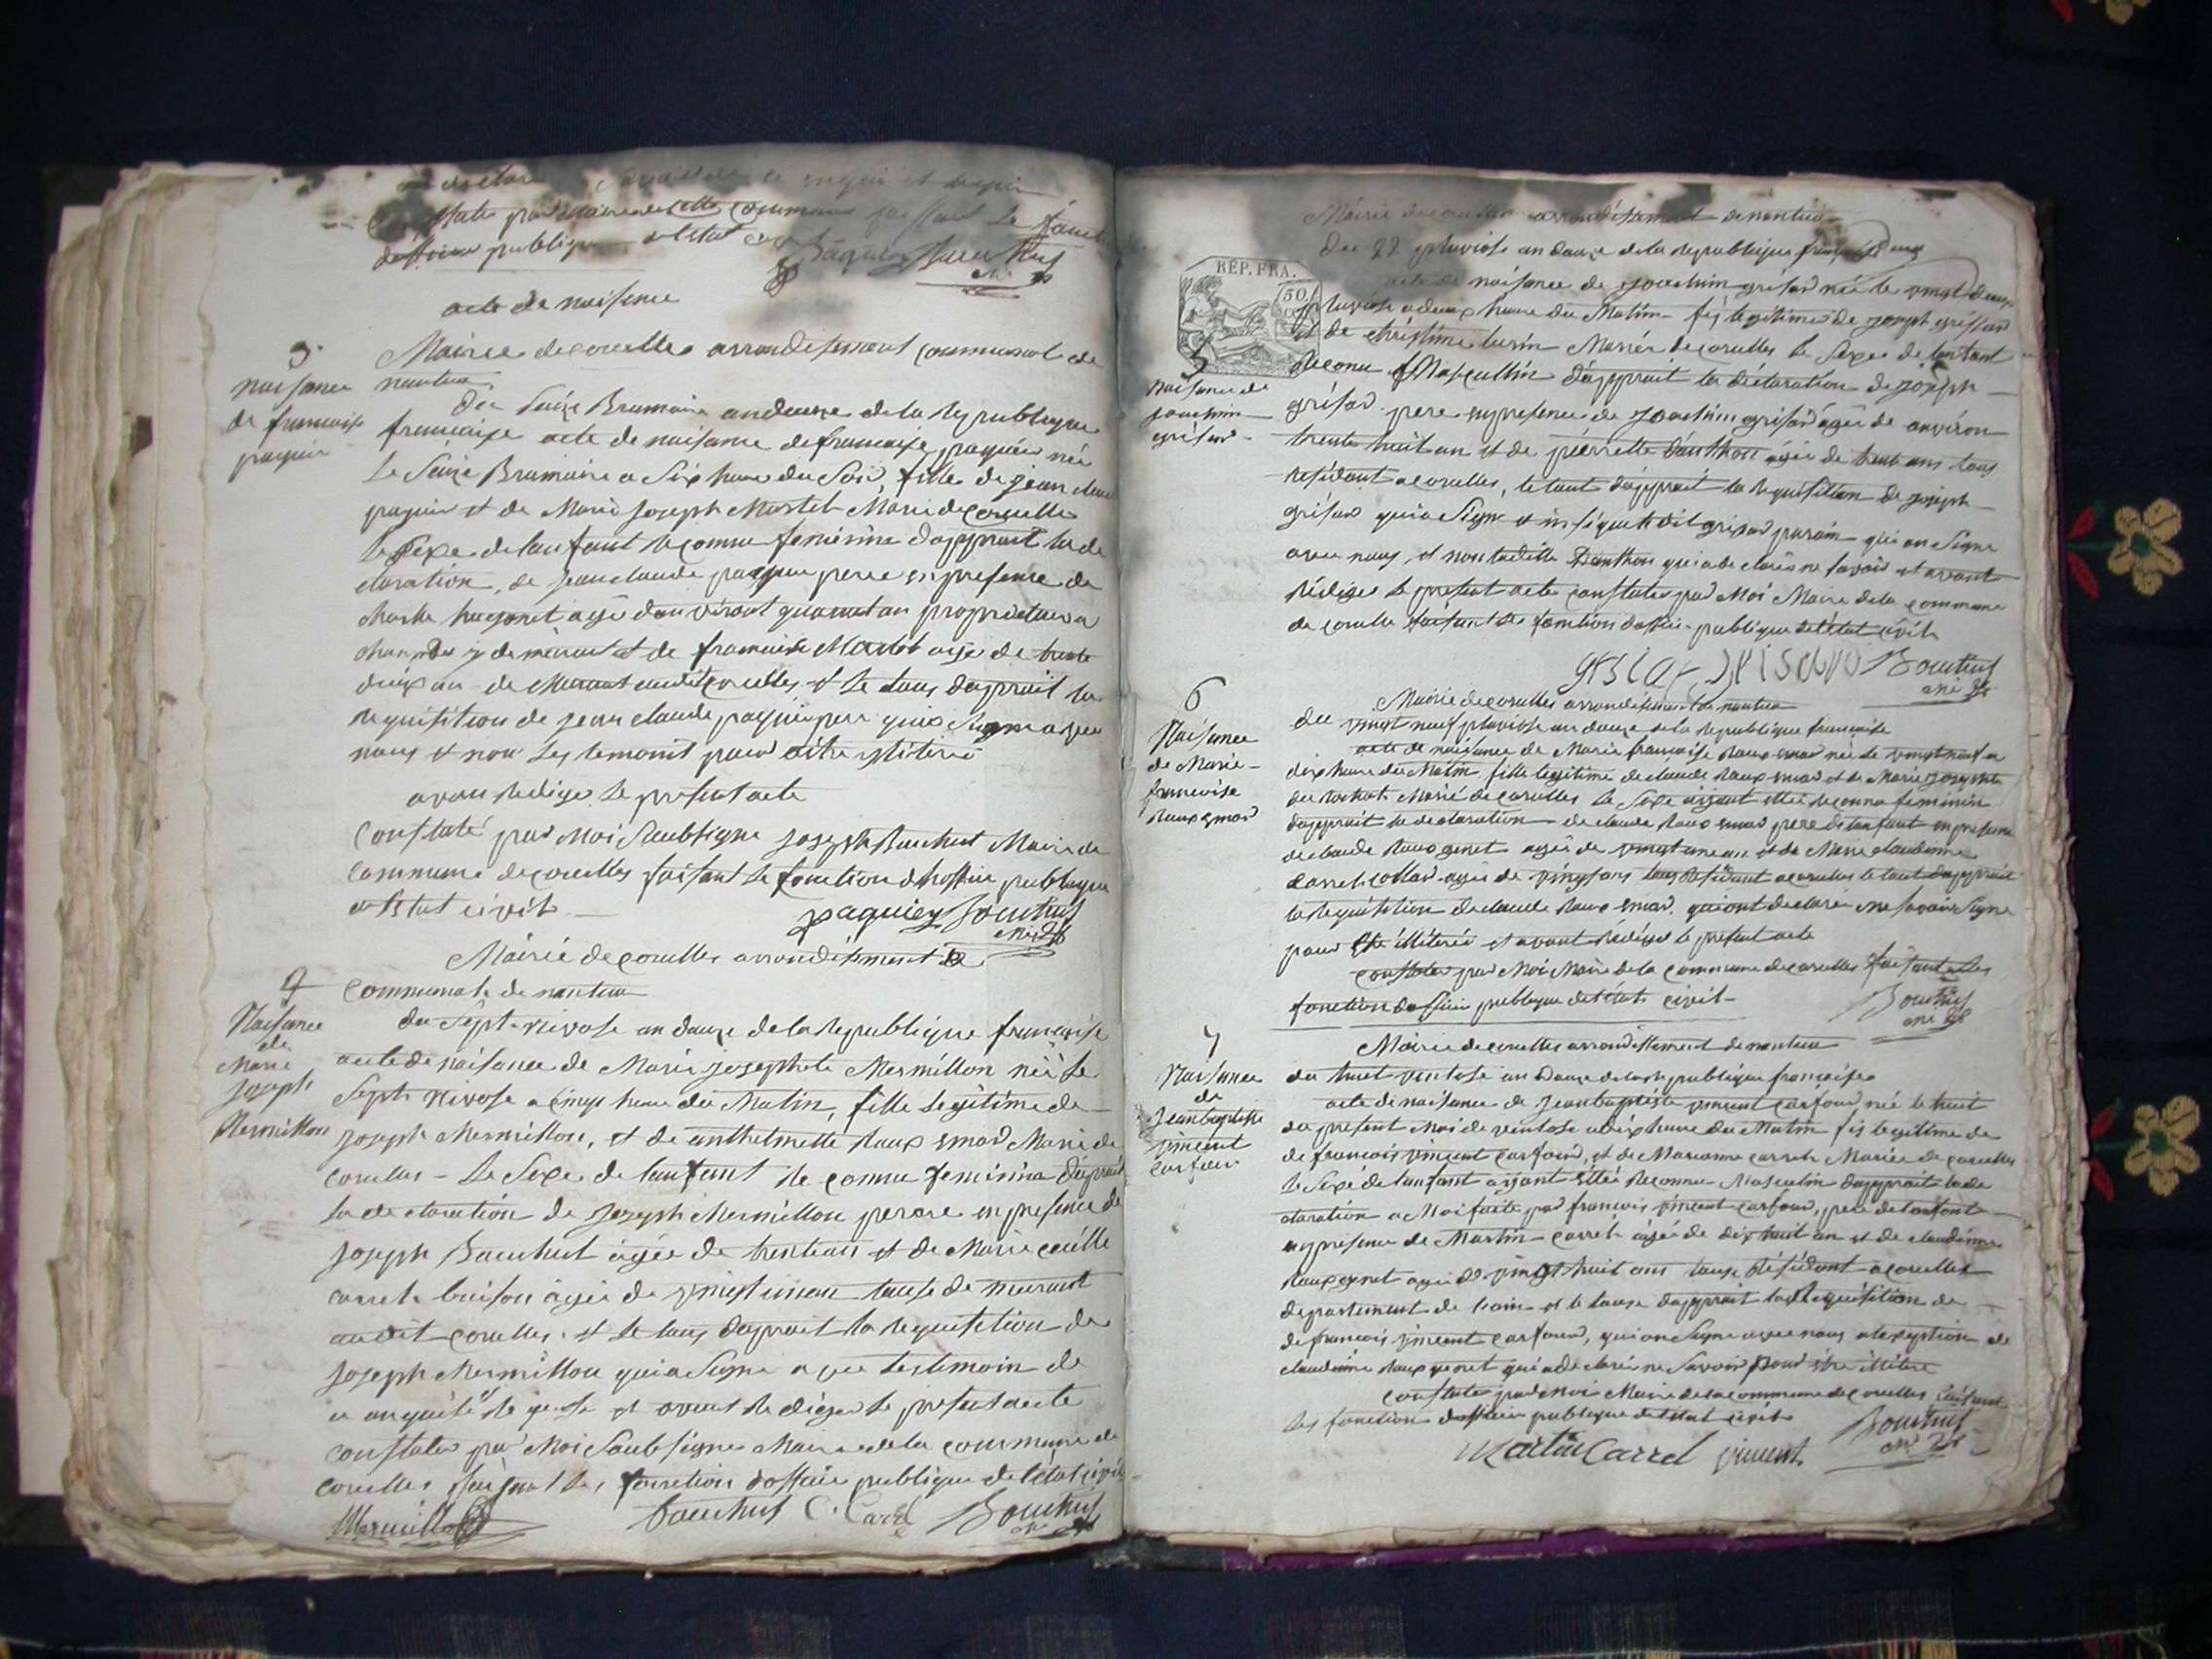 constaté par maire de cette commune faissant le fonction
dofficier publique de letat civil
paquiey Bouchus
mre
acte de naisence
3
naisance
de francoise
paquie
Mairee decorcelles arrondisement communal de
nantua
du Seize Brumaire an douze de la republique
francaise acte de naisance de francoise paquier née
le Seize Brumaire a Six heure du Soir, fille de jean claude
paquier et de Marie joseph Martel Marié de Corcelles
le Sexe de lanfant reconnu feminine dapprait la de
claration de jean claude paquier pere en presence de
ageé danviront quarantan propriétaire a
et de francoise Martel agé de trente
deux an demeurant audit corcelles et le tous dapprait la
requisition de jean claude paquier pere qui a Signe avec
nous et non les temoint pour aitre illitere
avons redige le present acte
Constaté par Moi Soubsigne joseph Bouchus Maire de
commune de corcelles faisant le fonction doffice publique
de letat civil
paquiey Bouchus
mre
Mairié de corcelles arrondisement
4
communale de nantua
Naisance
de
Marie
joseph
Mermillon
du Sept nivose an douze de la republique francaise
acte de naisance de Marie josephte Mermillon née le
Sept nivose a cinq heure du Matin, fille legitime de
joseph Mermillon, et de anthelmette Raux Emard Marié de
corcelles - le Sexe de lanfant reconnu feminine dapprait
la declaration de joseph Mermillon perere en presence de
joseph Bouchut agée de trentans et de Marie
carret buison agée de vingt unan tous de meurant
au dit corcelles et le tous daprait la requisition de
joseph Mermillon qui a Signé avec les temoin de
ce anquité requise et avons redigé le present acte
constaté par Moi Soubsigne Maire de la commune de
corcelles faisant les fonction doffice publique de letat civil
Mermillon bouchus C. Carrel Bouchus
mre
Mairie de corcelles arrondissement de nantua
du 22 pluviose an douze de la republique française
REP. FRA.
50
acte de naisance de joachim grisard née le vingt deux
pluviose a deux heure du Matin fis legitime de joseph grisard
et de christine lurin Mariés de corcelles le Sexe de lanfant
5
naisance de
joachim
grisard
reconu Masculin dapprait la declaration de joseph
grisard pere en presence de joachim grisard agée de anviron
trente huit an et de pierrette danthon agée de trent ans tous
residant a corcelles, le tout dapprait la requisition de joseph
grisard qui a Signe dit grisard parain qui on Signe
avec nous et non ladite Danthon qui a declarée ne savoir et avons
rédigé le present acte constaté par Moi Maire de la commune
de corcelle faisant les fonction doffice publique de letat civil
grisar Bouchus
mre
6
Naisance
de Marie
francoise
Raux emard
Mairie de corcelles arrondisement de nantua
du vingt neuf pluviose an douze de la republique francaise
acte de naisance de Marie francoise Raux emard née le vingt neuf a
dix heure du Matin fille legitime de claude Raux emard et de Marie josephte
du rochat Marié de corcelles le Sexe aiyant ettée reconnu feminin
dapprait la declaration de claude Raux emard pere de lanfant en presence
de claude Raux genet agée de vingt unan et de Marie claudinne
carret collard agée de vingt ans tous residant a corcelles le tout dapprait
la requisition de claude Raux emard qui ont declarée ne savoir Signe
pour etre illiterée et avons redigé le present acte
constaté par Moi Maire de la commune de corcelles faisant les
fonction doffice publique de letat civil
Bouchus
mre
7
Naisance
de
jean baptiste
vincent
carfour
Mairie de corcelles arrondissement de nantua
du huit ventose an Douze de la republique francaise
acte de naisance de jean baptiste vincent carfour née le huit
du present Moi de ventose a dix heure du Matin fis legitime de
de francois vincent carfour, et de Marianne carret Mariée de corcelles
le Sexe de lanfant aiyant ettée Reconnu Masculin dapprait la de
claration a Moi faite par francois vincent carfour, pere de lanfant
en presence de Martin carret agée de dix huit an et de claudinne
Raux genet agée de vingt huit ans tous résidant a corcelles
departement de lain et le tous dapprait la requisition de
de francois vincent carfour, qui on Signe avec nous a lexeption de
claudinne Raux genet qui a declarée ne Savoir pour etre illitere
constaté par Moi Maire de la commune de corcelles faisant
les fonction doffice publique de letat civil
Martin Carrel vincent Bouchus
mre